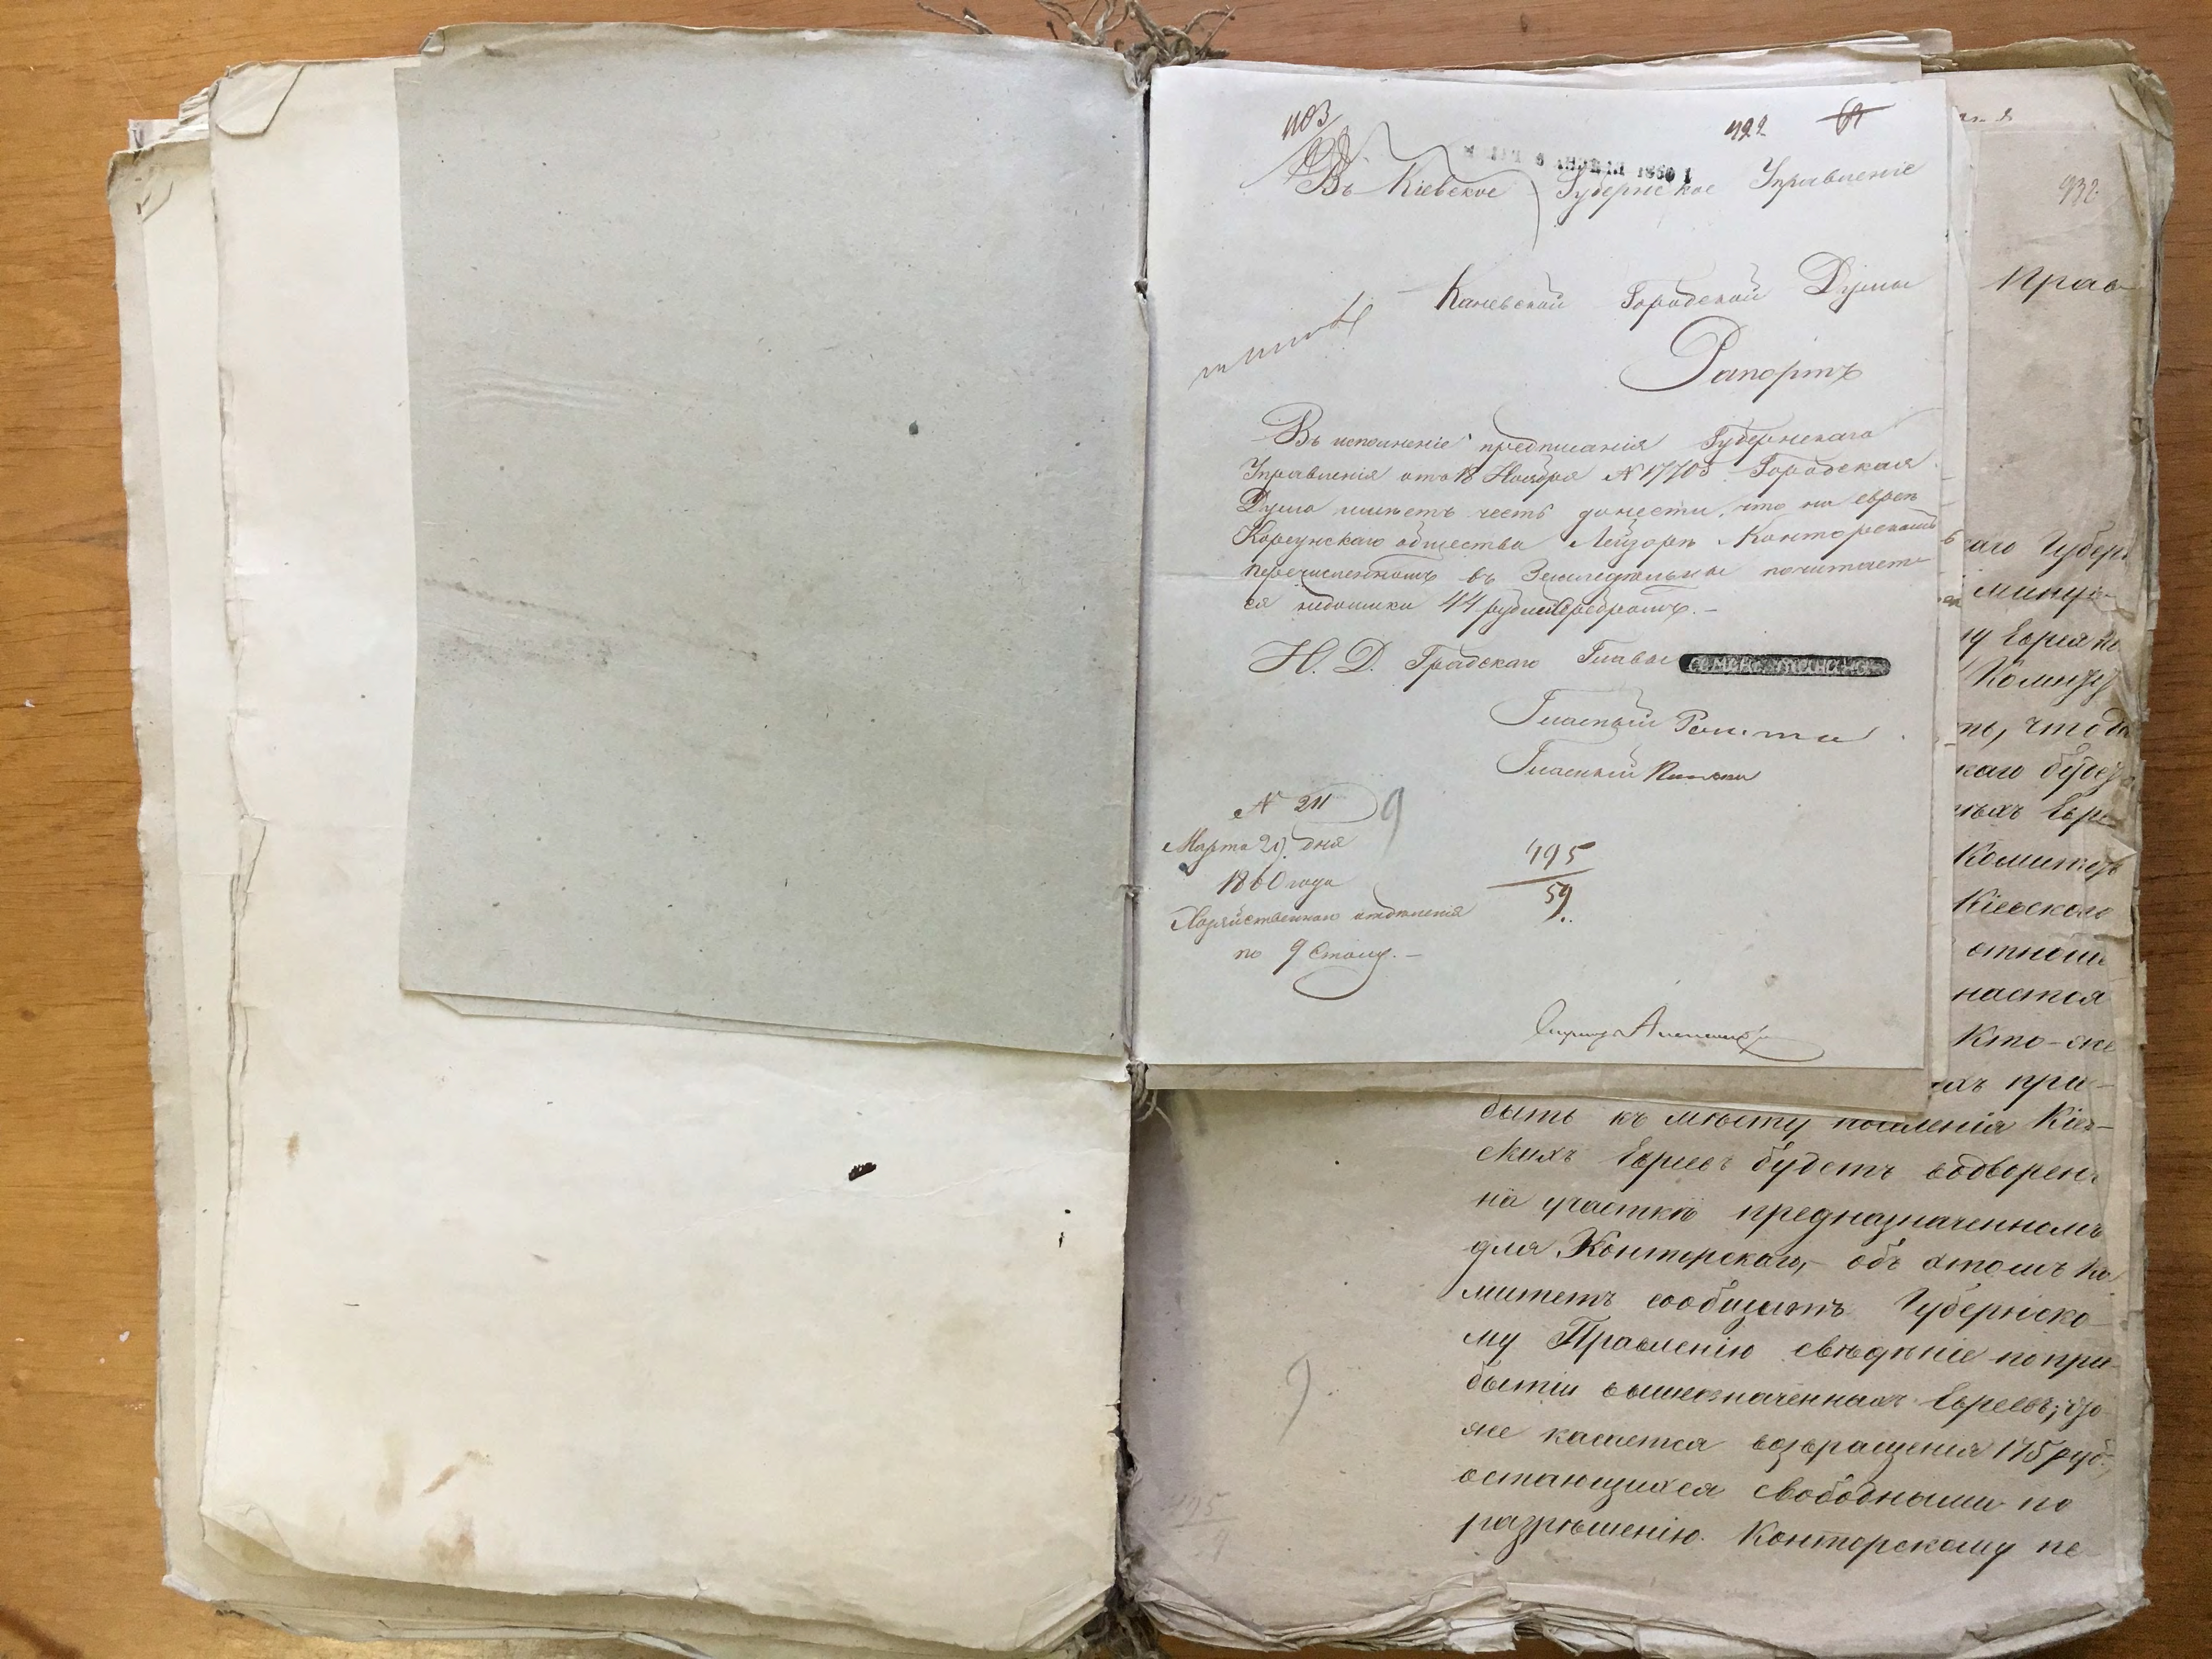 1103
422 61
АПРѢЛЯ 1860
Въ Кіевское Губернское Управленіе
Каневской Городской Думы
Рапортъ
Въ исполненіе предписанія Губернскаго
Управленія отъ 18 Ноября № 17703 Городская
Дума имѣетъ честь донести, что на евреѣ
Корсунскаго общества Лейзорѣ Конторскомъ
перечисленномъ въ Земледѣльцы почитает
ся недоимки 44 рубли серебромъ. –
И. Д. Градскаго Главы
Гласный
Гласный
№ 211 9
Марта 29 дня
1860 года
495
59
Хозяйственнаго отдѣленія
по 9 Столу. –
932
Прав
каго Губерн
минув
му Еврея По
Комите
ть, чтобы
каго будет
ныхъ Евре
Комитетъ
Кіевскаго
отноше
настоя
Кто-же
ихъ при-
быть къ мѣсту поселенія Кіев-
скихъ Евреевъ будетъ водворенъ
на участкѣ предназначенномъ
для Конторскаго, – объ этомъ Ко
митетъ сообщитъ Губернско-
му Правленію свѣдѣніе по при-
бытіи вышеозначенныхъ Евреевъ; что
же касается возвращенія 175 руб.,
остающихся свободными по
разрѣшенію Конторскому пе
9